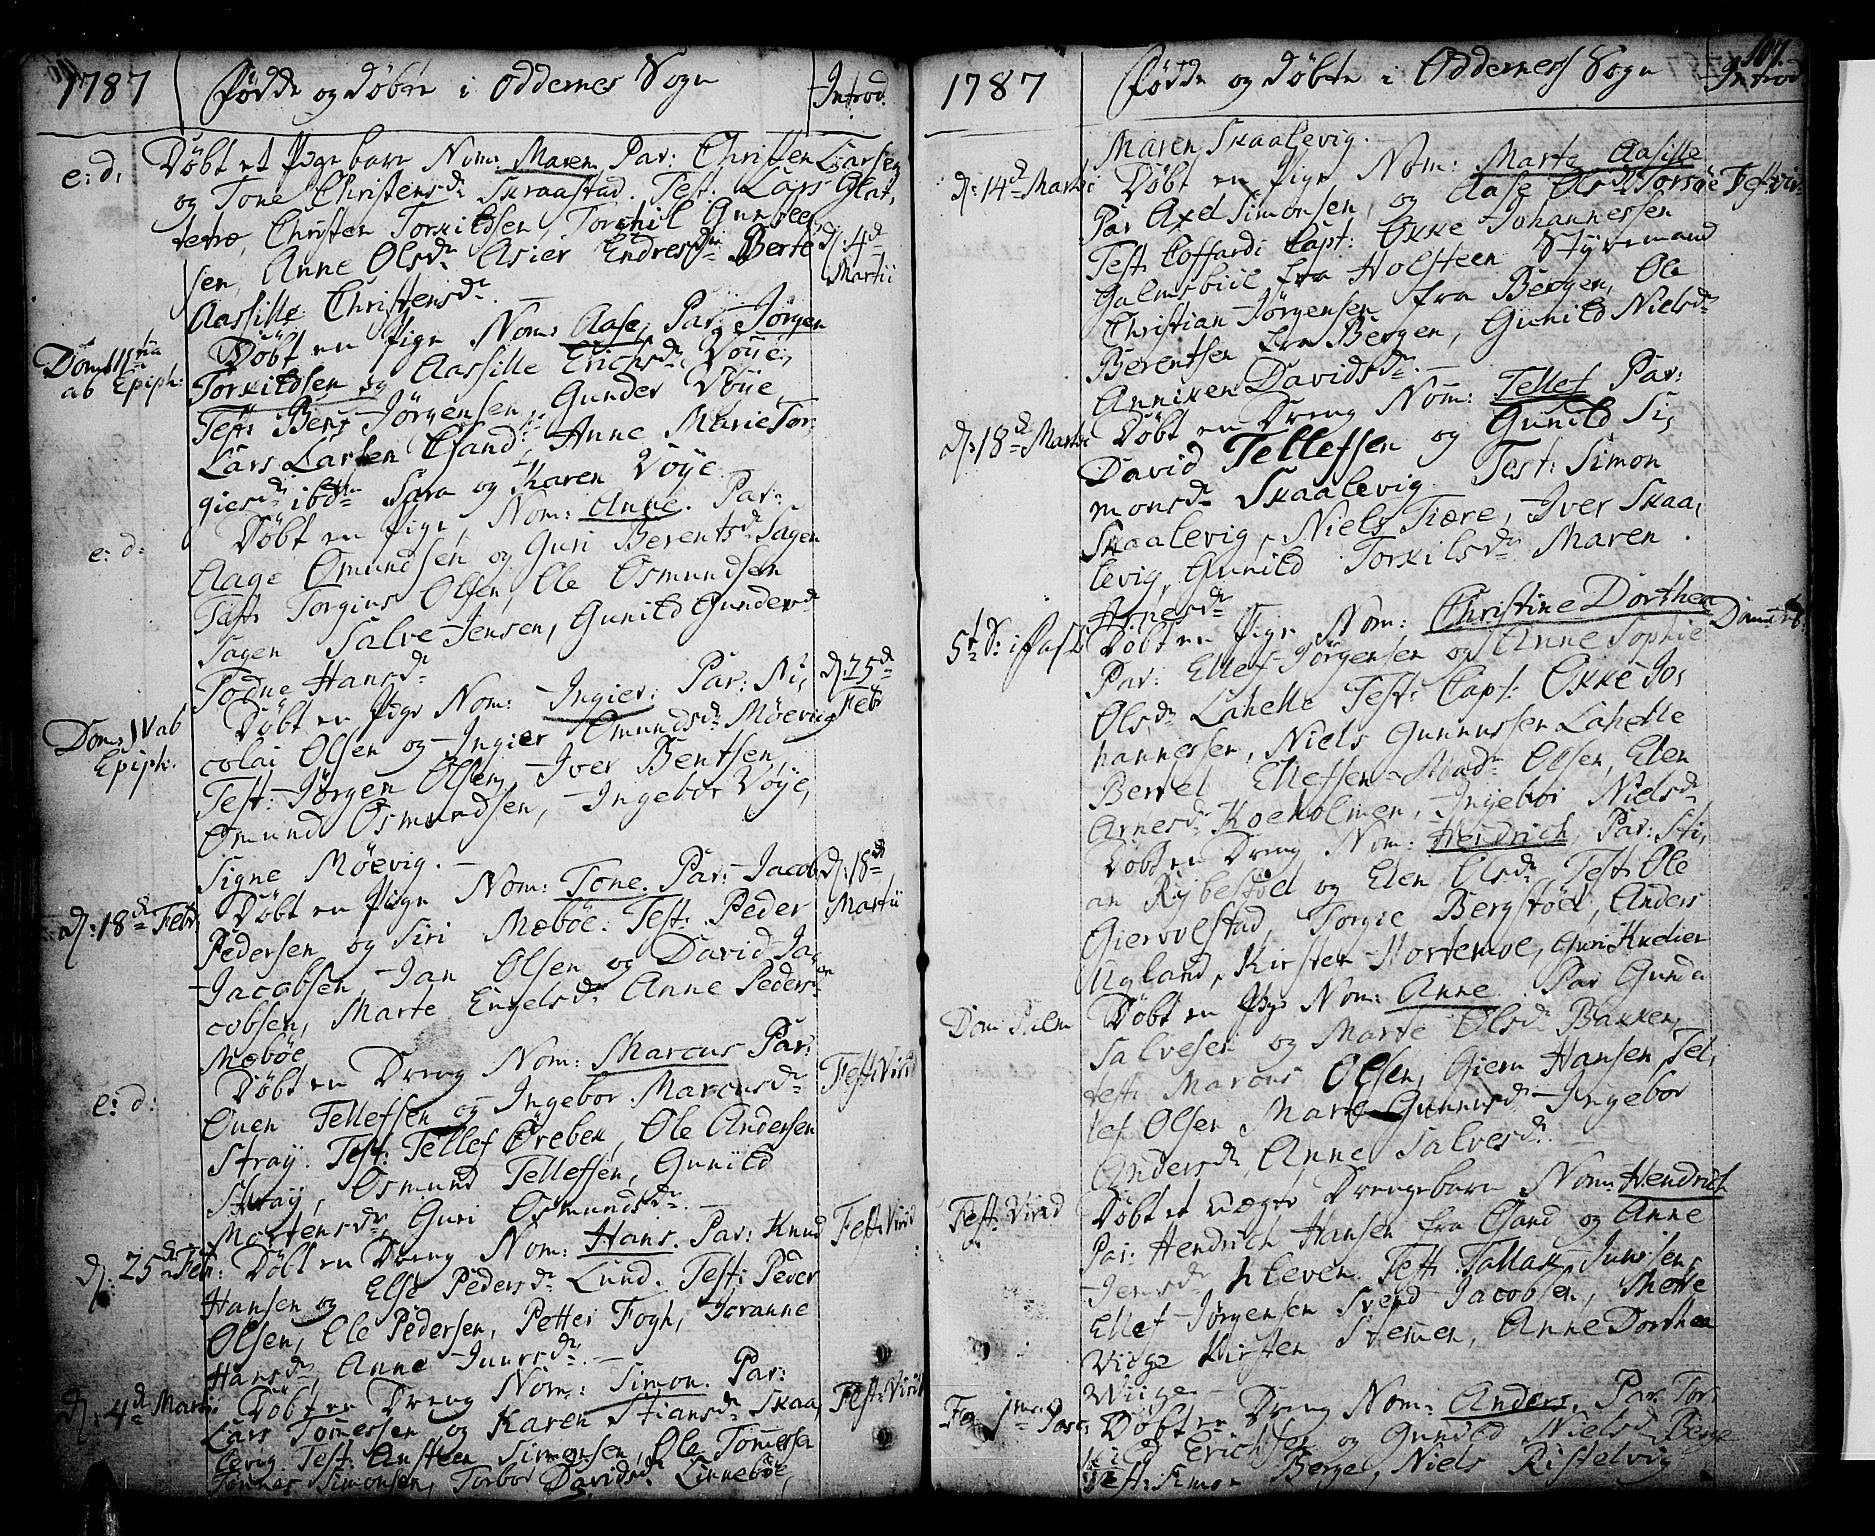 1787 Födde og Döbte i Oddernes Sogn Introd.
e: d: Döbt et Pige barn Nom: Maren Par: Christen Larsen
og Tone Christensdr Skraastad. Test: Lars Glat,
tetræ, Christen Torkildsen, Torchil Gunder
sen, Anne Olsdr Asier Endresdr Berte d: 4d
Martii
Aassille Christensdr. —
Dom: III tia ab Epiph: Döbt en Pige Nom: Aase, Par: Jörgen
Torkildsen og Aassille Erichsdr Vöije,
Test: Bent Jörgensen, Gunder Vöije,
Lars Larsen Csand, Anne Marie Tor,
giesdr ibdm Sara og Karen Vöije
e: d: Döbt en Pige, Nom: Anne. Par:
Aage Omundsen og Guri Berentsdr Sagen
Test: Torgius Olsen, Ole Osmundsen
Sagen Salve Jensen, Gunild Gundersdr
Todne Hansdr
Dom: IV ab Epiph. Döbt en Pige Nom: Ingier: Par: Ni, d: 25d
colai Olsen og Ingier Omundsdr Möevig Febr
Test: Jörgen Olsen, Iver Bentsen
Omund Osmundsen, Ingebor Vöije,
Signe Möevig. —
d: 18d Febr. Döbt en Pige Nom: Tone. Par: Jacob d: 18d
Pedersen og Siri Mæböe. Test: Peder Martii
Jacobsen, Jan Olsen og David Ja,
cobsen, Marte Engelsdr Anne Pedersdr
Mæböe
e: d: Döbt en Dreng Nom: Marcus Par: Fest: Virid
Ouen Tellefsen og Ingebor Marcusdr
Straÿ. Test: Tellef Örebek, Ole Andersen
Straÿ, Osmund Tellefsen, Gunild
Mortensdr, Guri Osmundsdr. —
d: 25d Febr: Döbt en Dreng Nom: Hans. Par: Knud Fest: Virid
Hansen og Else Pedersdr Lund. Test: Peder
Olsen, Ole Pedersen, Petter Fogh, Joranne
Hansdr, Anne Juursdr. —
d: 4d Marti Döbt en Dreng Nom: Simon. Par: Fest: Virid
Lars Tommessen og Karen Stiansdr Skaa,
levig. Test: Ansteen Simonsen, Ole Tommesen
Tönnes Simonsen, Torbor Davidsdr Linneböe,
107.
1787 Födde og Döbte i Oddernes Sogn Introd
Maren Skaalevig.
d: 14d Martii Döbt en Pige Nom: Marte Aasille Fest: Vir:
Par Axel Simonsen, og Aase Olsdr Torsöe
Test: Coffardi Capt: Okke Johannessen
Galmsbüll fra Holsteen Styremand
Christian Jörgensen fra Bergen, Ole
Berentsen fra Bergen, Gunild Nielsdr
Anniken Davidsdr. —
d: 18d Martii Döbt en Dreng Nom: Tellef Par:
David Tellefsen og Gunild Si,
monsdr Skaalevig. Test: Simon
Skaalevig, Niels Tiære, Iver Skaa,
levig, Gunild Torkilsdr Maren
Arnesdr
5t S: i Fast: Döbt en Pige Nom: Christine Dorthea
Par: Ellef Jörgensen og Anne Sophie
Olsdr Lahelle Test: Capt: Okke Jo,
hannessen, Niels Gunnussen Lahelle
Bertel Ellefsen Madm Olsen, Elen
Arnesdr Koeholmen, Ingebor Nielsdr
Döbt en Dreng Nom: Hendrich Par: Sti,
an Rÿbestöl og Elen Olsdr Test: Ole
Giervolstad, Torgie Bergstöl, Anders
Ugland, Kirsten Mortemoe, Guri
Dom Palm Döbt en Pige Nom: Anne. Par Gunde
Salvesen og Marte Olsdr Bakken,
test: Marcus Olsen, Giern Hansen Tel,
lef Olsen Marte Gunnusdr Ingebor
Andersdr Anne Salvesdr. —
Fest: Virid Döbt et uægte Drengebarn Nom: Hendrich
Par: Hendrich Hansen fra Csand og Anne
Jensdr Kleven Test: Tallak Juusen,
Ellef Jörgensen Svend Jacobsen,
Viige Kirsten Stemmen, Anne Dorthea
Wiige —
Fer 1ma Pasc: Döbt en Dreng Nom: Anders, Par: Tor,
kild Erichsen og Gunild Nielsdr Berge
Test: Simon Berge, Niels Ristelvig